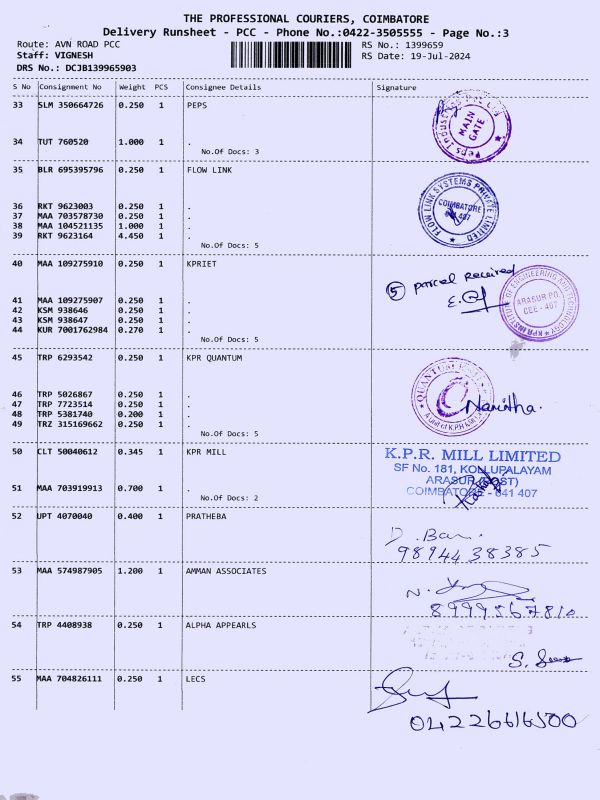 THE PROFESSIONAL COURIERS, COIMBATORE
Delivery Runsheet - PCC - Phone No.:0422-3505555 - Page No.:3
Route: AVN ROAD PCC
Staff: VIGNESH
DRS No.: DCJB139965903
RS No.: 1399659
RS Date: 19-Jul-2024
S No Consignment No Weight PCS Consignee Details Signature
33 SLM 350664726 0.250 1 PEPS
MAIN GATE
34 TUT 760520 1.000 1 .
No.Of Docs: 3
35 BLR 695395796 0.250 1 FLOW LINK
FLOW LINK SYSTEMS PRIVATE LIMITED
COIMBATORE
641 407
36 RKT 9623003 0.250 1 .
37 MAA 703578730 0.250 1 .
38 MAA 104521135 1.000 1 .
39 RKT 9623164 4.450 1 .
No.Of Docs: 5
40 MAA 109275910 0.250 1 KPRIET
5 parcel received
KPR INSTITUTE OF ENGINEERING AND TECHNOLOGY
ARASUR PO.
CEE - 407
41 MAA 109275907 0.250 1 .
42 KSM 938646 0.250 1 .
43 KSM 938647 0.250 1 .
44 KUR 7001762984 0.270 1 .
No.Of Docs: 5
45 TRP 6293542 0.250 1 KPR QUANTUM
46 TRP 5026867 0.250 1 .
47 TRP 7723514 0.250 1 .
48 TRP 5381740 0.200 1 .
49 TRZ 315169662 0.250 1 .
No.Of Docs: 5
50 CLT 50040612 0.345 1 KPR MILL
K.P.R. MILL LIMITED
SF No. 181, KOLLUPALAYAM
ARASUR (POST)
COIMBATORE - 641 407
51 MAA 703919913 0.700 1 .
No.Of Docs: 2
52 UPT 4070040 0.400 1 PRATHEBA
9894438385
53 MAA 574987905 1.200 1 AMMAN ASSOCIATES
8999567810
54 TRP 4408938 0.250 1 ALPHA APPEARLS
55 MAA 704826111 0.250 1 LECS
04226616500